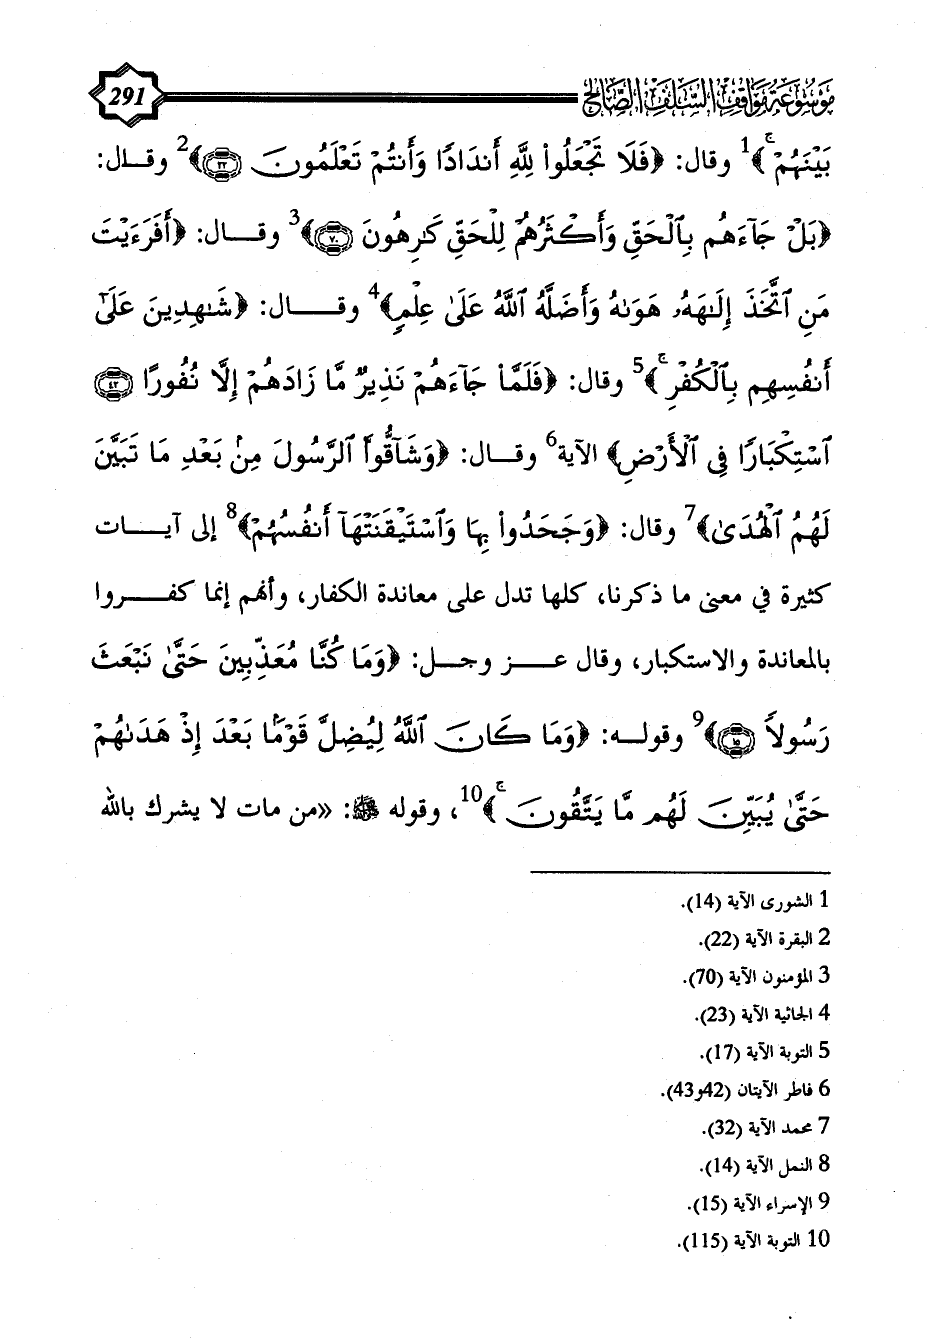 موسوعة مواقف السلف الصالح
291
بَيْنَهُمْ ۚ﴾1 وقال: ﴿فَلَا تَجْعَلُوا۟ لِلَّهِ أَندَادًا وَأَنتُمْ تَعْلَمُونَ ﴿٢٢﴾﴾2 وقال:
﴿بَلْ جَآءَهُم بِٱلْحَقِّ وَأَكْثَرُهُمْ لِلْحَقِّ كَٰرِهُونَ ﴿٧٠﴾﴾3 وقال: ﴿أَفَرَءَيْتَ
مَنِ ٱتَّخَذَ إِلَٰهَهُۥ هَوَىٰهُ وَأَضَلَّهُ ٱللَّهُ عَلَىٰ عِلْمٍ﴾4 وقال: ﴿شَٰهِدِينَ عَلَىٰٓ
أَنفُسِهِم بِٱلْكُفْرِ ۚ﴾5 وقال: ﴿فَلَمَّا جَآءَهُمْ نَذِيرٌ مَّا زَادَهُمْ إِلَّا نُفُورًا ﴿٤٢﴾
ٱسْتِكْبَارًا فِى ٱلْأَرْضِ﴾ الآية6 وقال: ﴿وَشَآقُّوا۟ ٱلرَّسُولَ مِنۢ بَعْدِ مَا تَبَيَّنَ
لَهُمُ ٱلْهُدَىٰ﴾7 وقال: ﴿وَجَحَدُوا۟ بِهَا وَٱسْتَيْقَنَتْهَآ أَنفُسُهُمْ﴾8 إلى آيات
كثيرة في معنى ما ذكرنا، كلها تدل على معاندة الكفار، وأنهم إنما كفروا
بالمعاندة والاستكبار، وقال عز وجل: ﴿وَمَا كُنَّا مُعَذِّبِينَ حَتَّىٰ نَبْعَثَ
رَسُولًا ﴿١٥﴾﴾9 وقوله: ﴿وَمَا كَانَ ٱللَّهُ لِيُضِلَّ قَوْمًۢا بَعْدَ إِذْ هَدَىٰهُمْ
حَتَّىٰ يُبَيِّنَ لَهُم مَّا يَتَّقُونَ ۚ﴾10، وقوله ﷺ: «من مات لا يشرك بالله
1 الشورى الآية (14).
2 البقرة الآية (22).
3 المؤمنون الآية (70).
4 الجاثية الآية (23).
5 التوبة الآية (17).
6 فاطر الآيتان (42و43).
7 محمد الآية (32).
8 النمل الآية (14).
9 الإسراء الآية (15).
10 التوبة الآية (115).